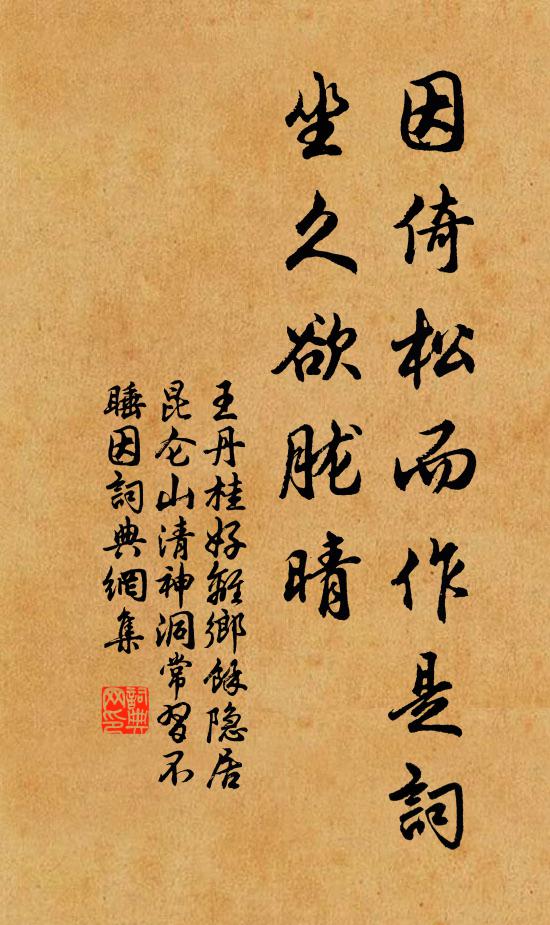 因倚松而作是詞
坐久欲胧晴
王丹桂好離鄉餘隐居
昆仑山清神洞常習不
睡因詞典網集
詞典
网印